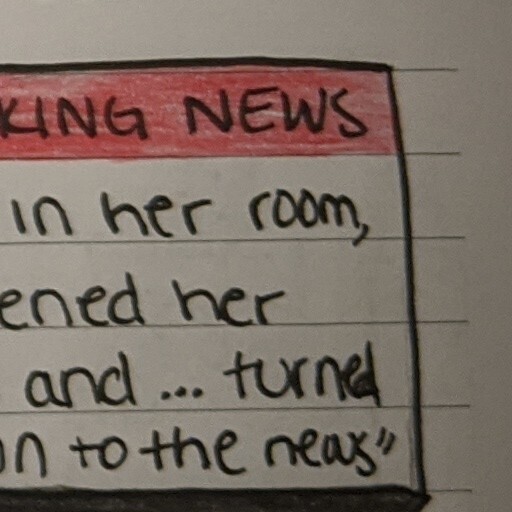 KING NEWS
in her room,
ened her
and ... turned
on to the news"